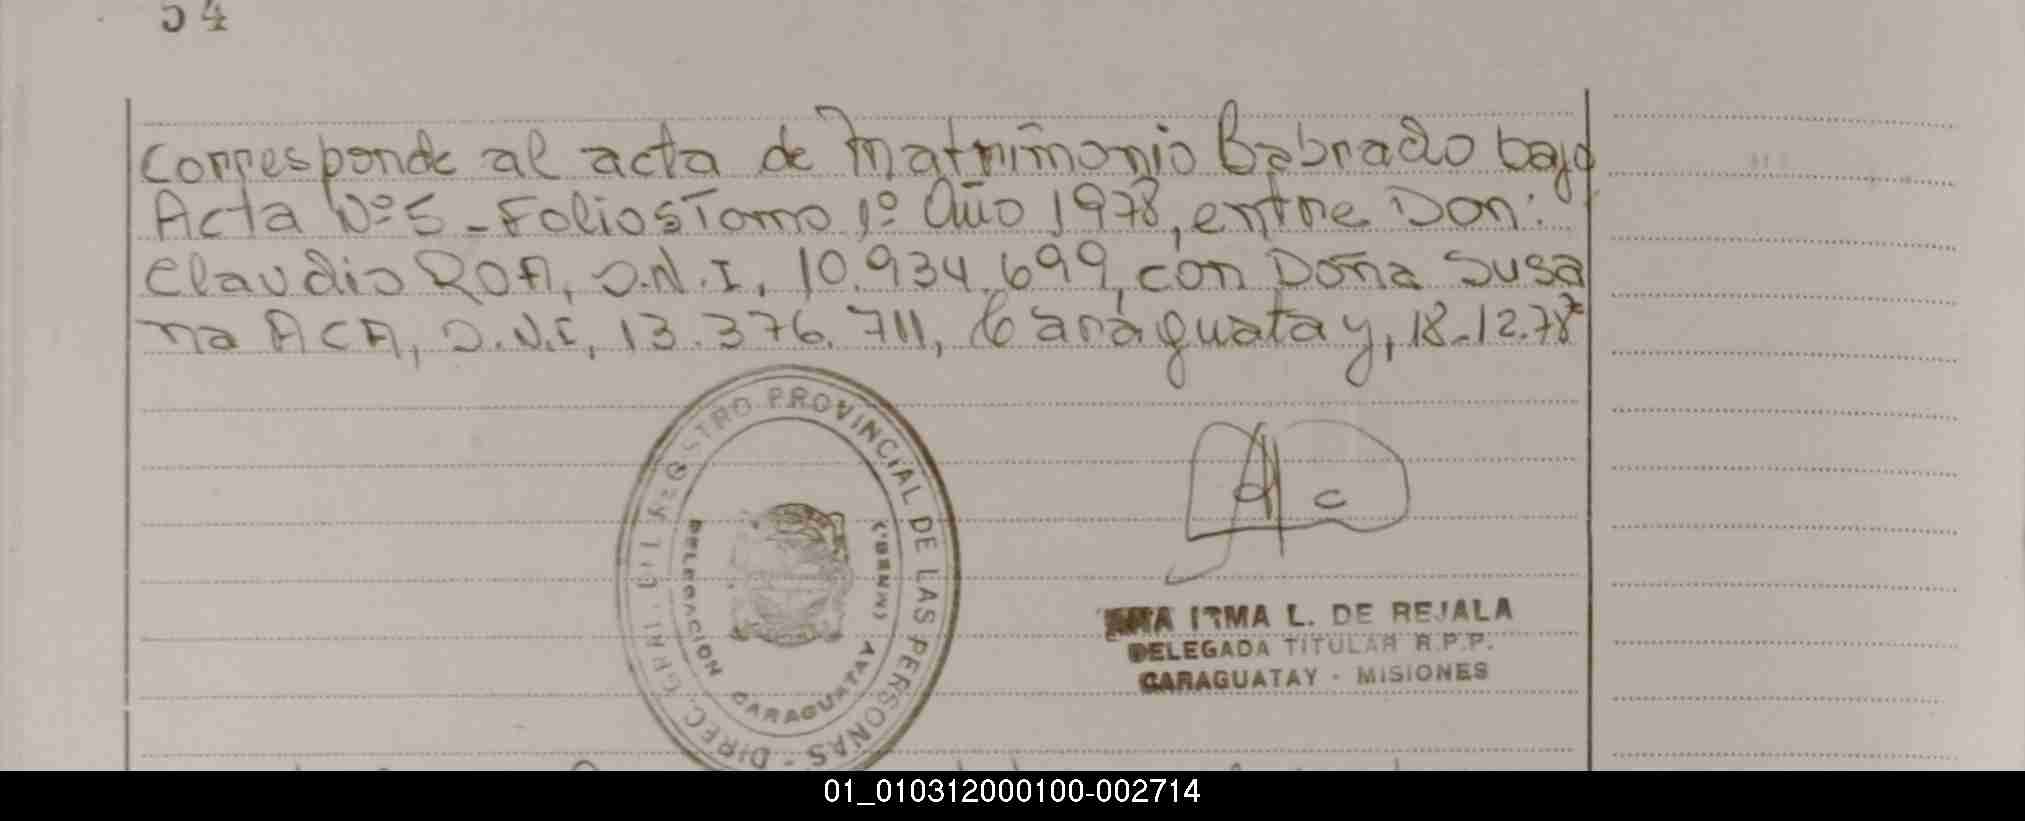 54
Corresponde al acta de Matrimonio Labrado bajo
Acta Nº5-Folio5Tomo 1º Año 1978, entre Don:
Claudio ROA, D.N.I, 10.934.699, con Doña Susa
na ACA, D.N.I, 13.376.711, Caraguatay, 18-12-78
DIREC. GRAL. DEL REGISTRO PROVINCIAL DE LAS PERSONAS -
DELEGACION CARAGUATAY
IRMA L. DE REJALA
DELEGADA TITULAR R.P.P.
CARAGUATAY - MISIONES
01_010312000100-002714